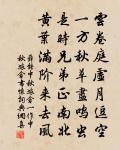 雲卷庭虛月逗空
一方秋草盡鳴蟲
是時兄弟正南北
黃葉滿階來去風
薛能中秋旅舍一作中
秋旅舍書懷詞典網集